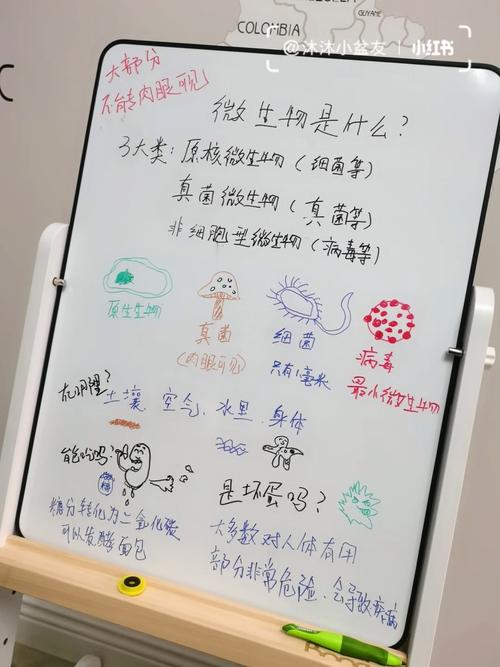 COLOMBIA
GUYANE
@沐沐小盆友 | 小红书
大部分
不能肉眼可见
微生物是什么?
3大类:原核微生物(细菌等)
真菌微生物(真菌等)
非细胞型微生物(病毒等)
原生生物
真菌
(肉眼可见)
细菌
只有1毫米
病毒
最小微生物
在哪里?
土壤、空气、水里、身体
能吃吗?
糖
是坏蛋吗?
糖分转化为二氧化碳
可以发酵面包
大多数对人体有用
部分非常危险、会导致疾病